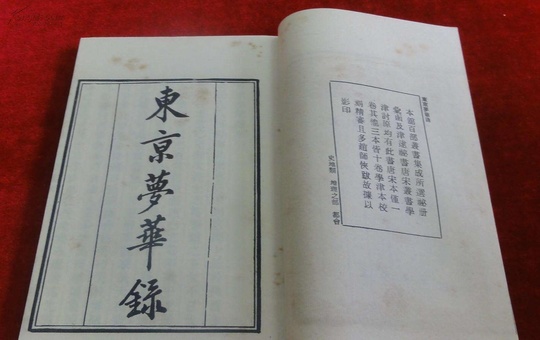 東京夢華錄
本館百部叢書集成所選祕冊
彙函及津逮祕書唐宋叢書學
津討原均有此書唐宋本僅一
卷其他三本皆十卷學津本校
刻精審且多趙師俠跋故據以
影印
史地類 地理之屬 都會
東京夢華錄